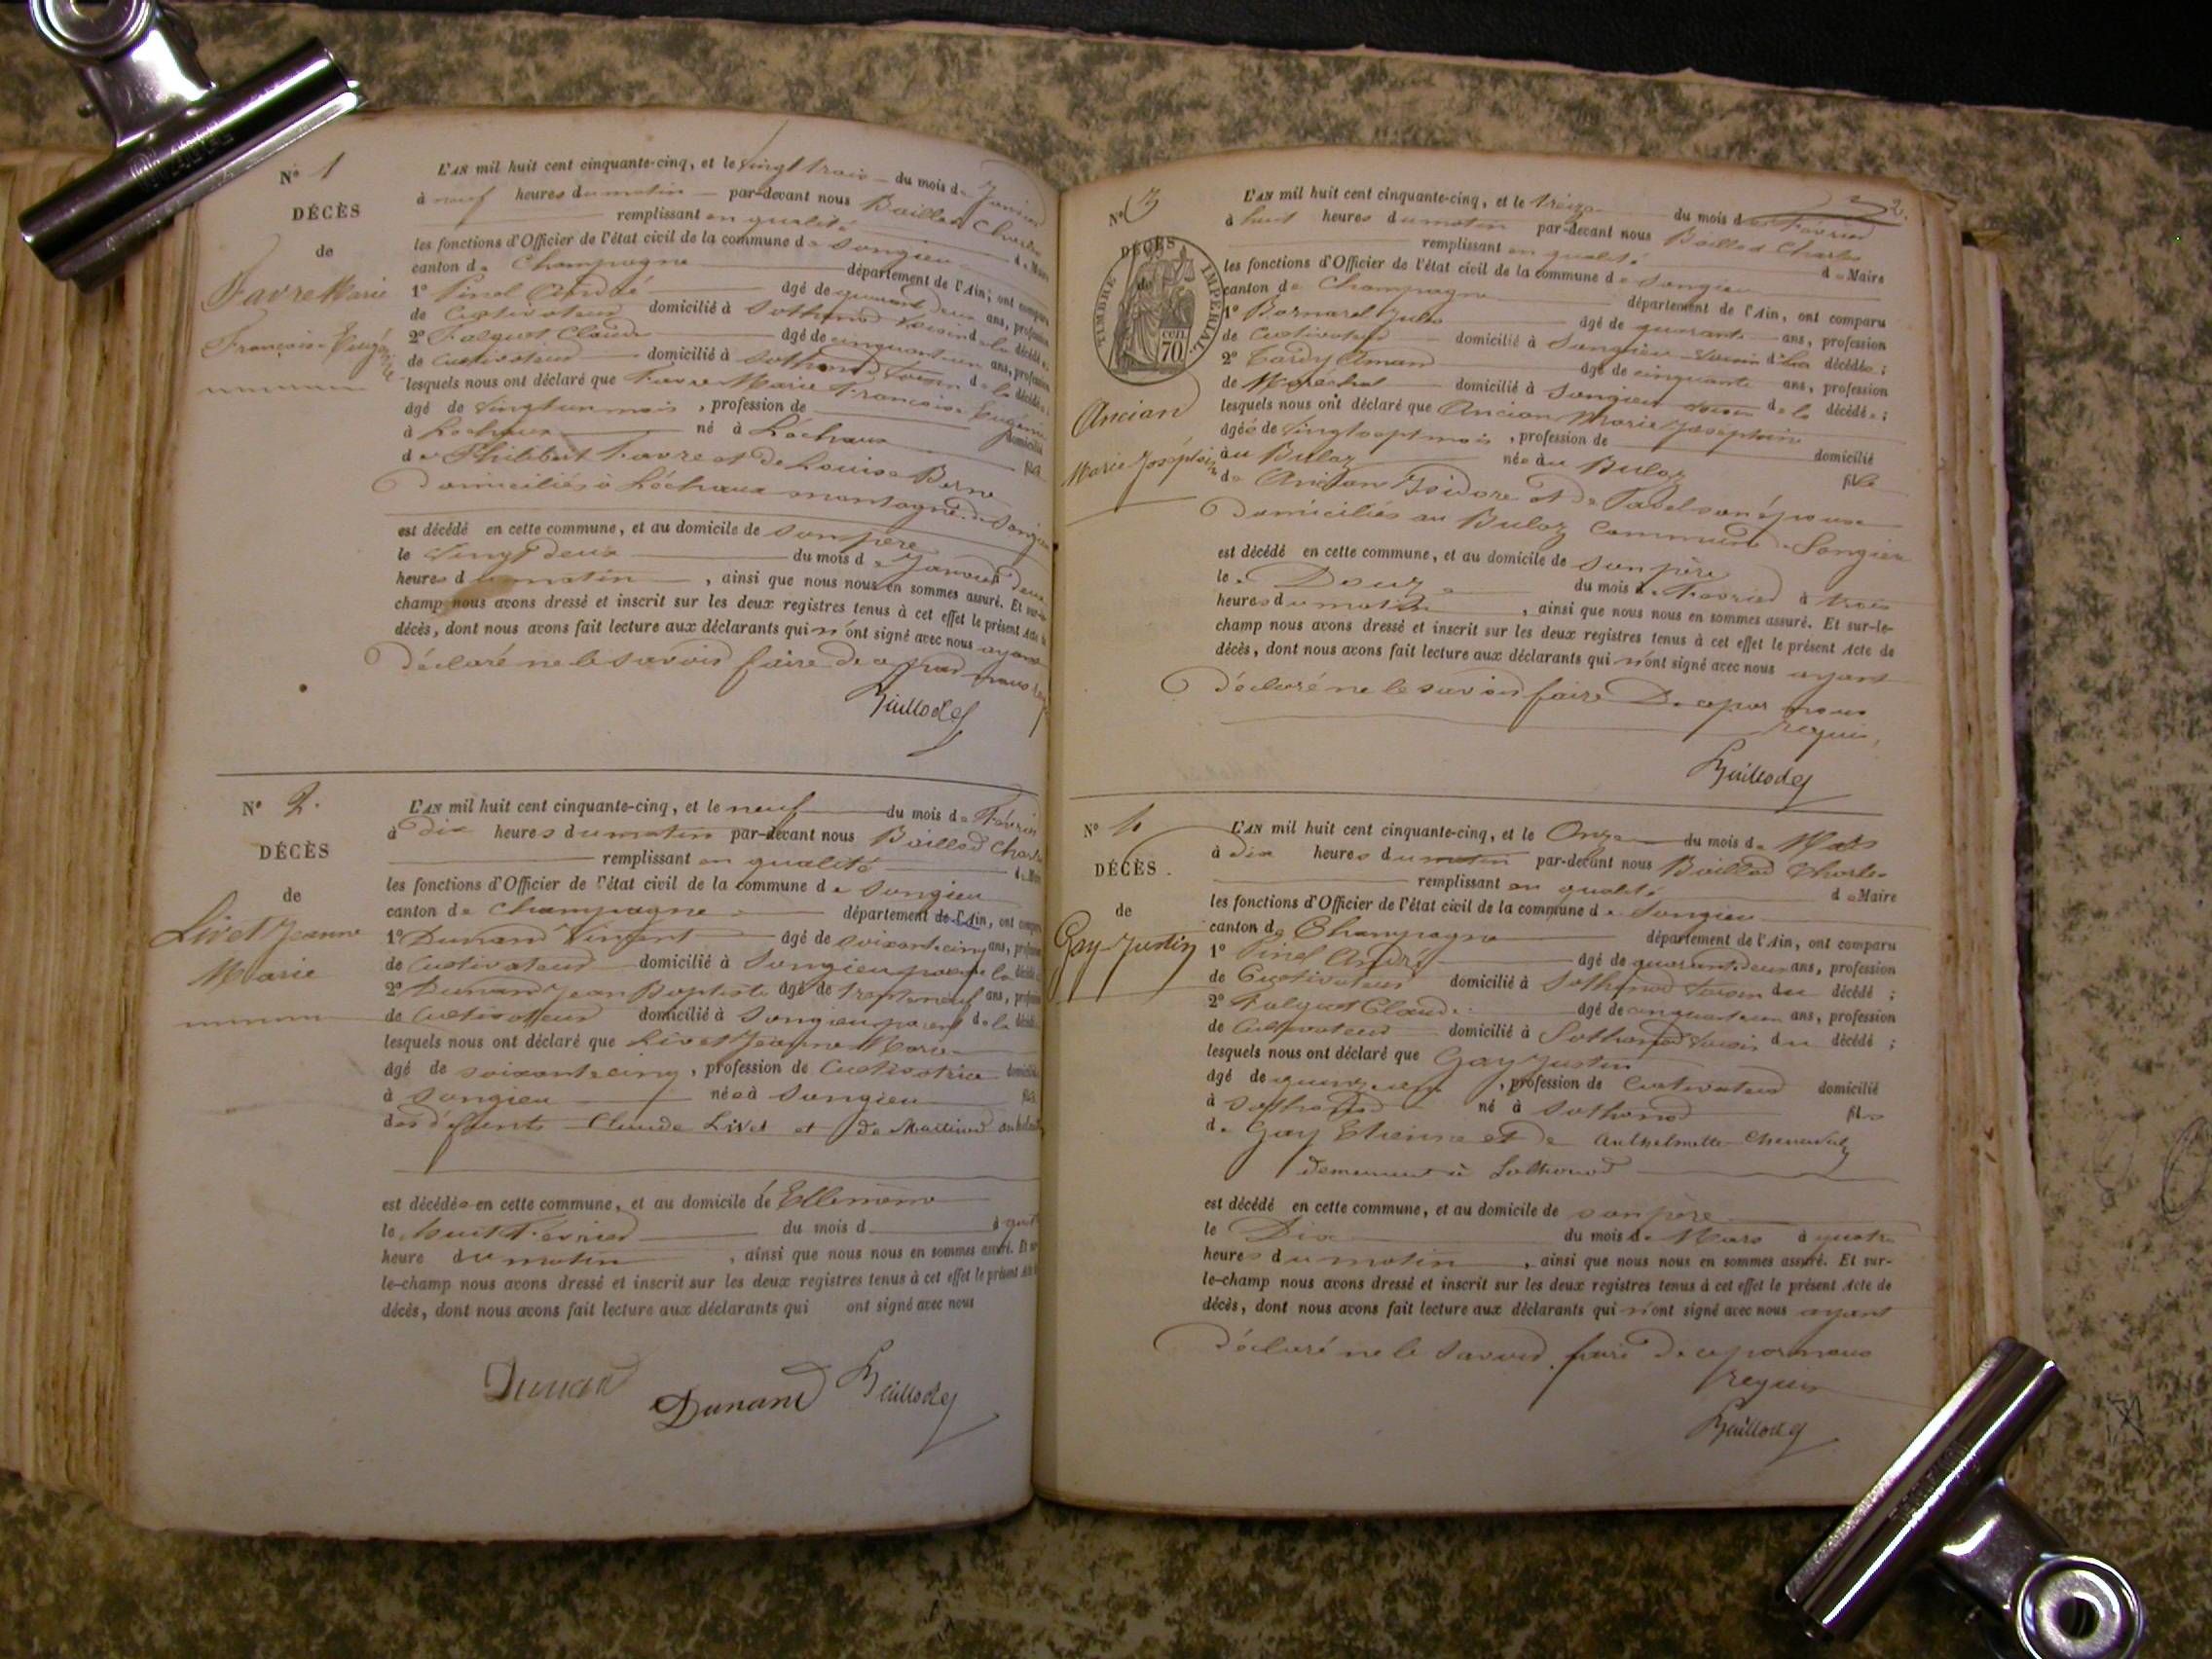 Nº 1
DÉCÈS
de
Favre Marie
Françoise Eugénie
L'AN mil huit cent cinquante-cinq, et le vingt trois du mois de Janvier
à neuf heures du matin par-devant nous Baillod Charles
remplissant en qualité de Maire
les fonctions d'Officier de l'état civil de la commune de Songieu
canton de Champagne département de l'Ain, ont comparu
1º Pinel André âgé de quarant deux ans, profession
de Cultivateur domicilié à Sothonod voisin de la décédée
2º Falquet Claude âgé de cinquant un ans, profession
de Cultivateur domicilié à Sothonod voisin de la décédée
lesquels nous ont déclaré que Favre Marie Françoise Eugénie
âgé de vingt un mois, profession de domicilié
à Lochaux né à Lochaux fille
de Philibert Favre et de Louise Berne
Domiciliés à Lochaux montagne de Songieu
est décédé en cette commune, et au domicile de son père
le vingt deux du mois de Janvier à deux
heures du matin, ainsi que nous nous en sommes assuré. Et sur-le-
champ nous avons dressé et inscrit sur les deux registres tenus à cet effet le présent Acte de
décès, dont nous avons fait lecture aux déclarants qui n'ont signé avec nous ayant
Déclaré ne le savoir faire de ce par nous
Baillod
Nº 2.
DÉCÈS
de
Livet Jeanne
Marie
L'AN mil huit cent cinquante-cinq, et le neuf du mois de Février
à Dix heures du matin par-devant nous Baillod Charles
remplissant en qualité de Maire
les fonctions d'Officier de l'état civil de la commune de Songieu
canton de Champagne département de l'Ain, ont comparu
1º Dunand Vincent âgé de soixante cinq ans, profession
de Cultivateur domicilié à Songieu parent de la décédée
2º Dunand Jean Baptiste âgé de trente neuf ans, profession
de Cultivateur domicilié à Songieu parent de la décédée
lesquels nous ont déclaré que Livet Jeanne Marie
âgé de soixante cinq, profession de Cultivatrice domicilié
à Songieu née à Songieu fille
des défunts Claude Livet et de
est décédée en cette commune, et au domicile de Elle même
le huit Février du mois d à
heure du matin, ainsi que nous nous en sommes assuré. Et sur-
le-champ nous avons dressé et inscrit sur les deux registres tenus à cet effet le présent Acte de
décès, dont nous avons fait lecture aux déclarants qui ont signé avec nous
Dunand Dunand Baillod
2.
Nº 3
DÉCÈS
de
TIMBRE IMPÉRIAL
70 cen
Ancian
Marie Joséphine
L'AN mil huit cent cinquante-cinq, et le treize du mois de Février
à huit heures du matin par-devant nous Baillod Charles
remplissant en qualité de Maire
les fonctions d'Officier de l'état civil de la commune de Songieu
canton de Champagne département de l'Ain, ont comparu
1º Bornarel Jules âgé de quarante ans, profession
de Cultivateur domicilié à Songieu voisin de la décédée;
2º Tardy Aman âgé de cinquante ans, profession
de Maréchal domicilié à Songieu voisin de la décédée;
lesquels nous ont déclaré que Ancian Marie Joséphine
âgée de vingt sept mois, profession de domicilié
au Buloz née au Buloz fille
de Ancian Isidore et de Pavel son épouse
Domiciliés au Buloz Commune de Songieu
est décédé en cette commune, et au domicile de son père
le Douze du mois de Février à trois
heures du matin, ainsi que nous nous en sommes assuré. Et sur-le-
champ nous avons dressé et inscrit sur les deux registres tenus à cet effet le présent Acte de
décès, dont nous avons fait lecture aux déclarants qui n'ont signé avec nous ayant
Déclaré ne le savoir faire De ce par nous
requis,
Baillod
Nº 4
DÉCÈS.
de
Gay Justin
L'AN mil huit cent cinquante-cinq, et le Onze du mois de Mars
à dix heures du matin par-devant nous Baillod Charles
remplissant en qualité de Maire
les fonctions d'Officier de l'état civil de la commune de Songieu
canton de Champagne département de l'Ain, ont comparu
1º Pinel André âgé de quarant deux ans, profession
de Cultivateur domicilié à Sothonod voisin du décédé;
2º Falquet Claude âgé de cinquant un ans, profession
de Cultivateur domicilié à Sothonod voisin du décédé;
lesquels nous ont déclaré que Gay Justin
âgé de quinze ans, profession de Cultivateur domicilié
à Sothonod né à Sothonod fils
de Gay Etienne et de Anthelmette
demeurant à Sothonod
est décédé en cette commune, et au domicile de son père
le Dix du mois de Mars à quatre
heures du matin, ainsi que nous nous en sommes assuré. Et sur-
le-champ nous avons dressé et inscrit sur les deux registres tenus à cet effet le présent Acte de
décès, dont nous avons fait lecture aux déclarants qui n'ont signé avec nous ayant
Déclaré ne le savoir faire De ce par nous
requis
Baillod